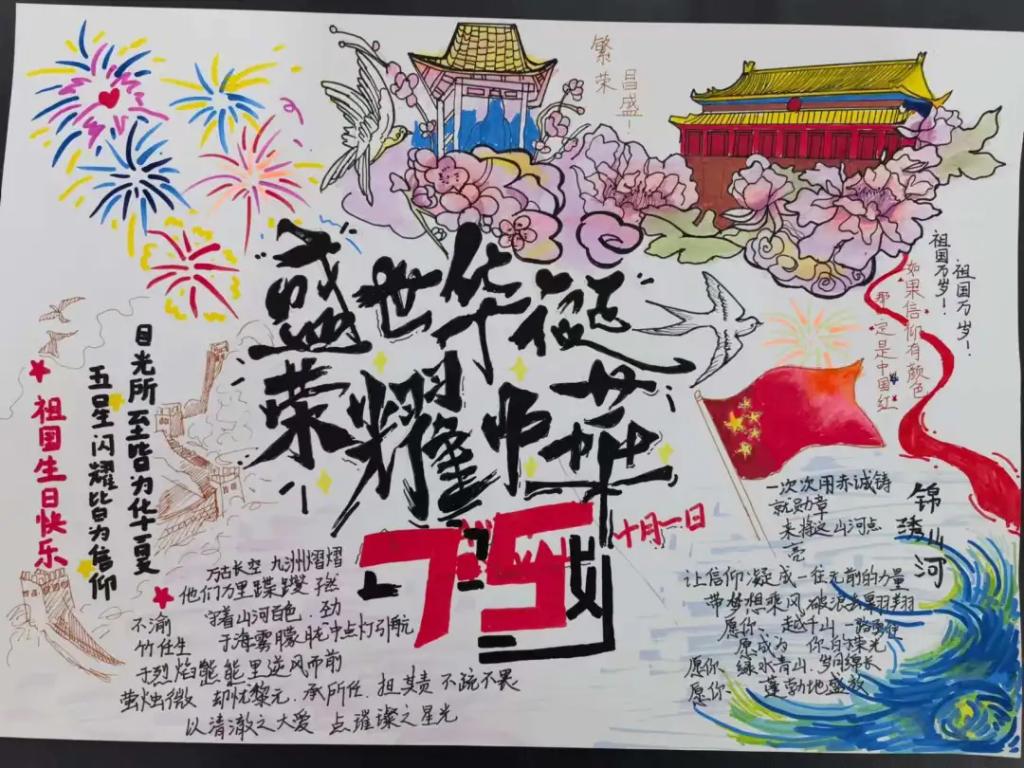 繁荣
昌盛!
盛世华诞
荣耀中华
75
十月一日
祖国万岁!
祖国万岁!
如果信仰有颜色
那一定是中国红
目光所至皆为华夏
五星闪耀皆为信仰
祖国生日快乐
万古长空 九州熠熠
他们万里蹀躞 孑然
不渝 守着山河百色·劲
竹任生 于海雾朦胧中点灯引航
于烈焰 能里逆风而前
萤烛微 却忧黎元·承所任·担其责 不疏不畏
以清澈之大爱 点璀璨之星光
一次次用赤诚铸
就勋章
来将这山河点
亮
锦绣山河
让信仰凝成一往无前的力量
带梦想乘风破浪去翱翔
愿你 越千山 一路勇往
愿成为 你自豪光
愿你 绿水青山·岁月绵长
愿你 蓬勃地盛放